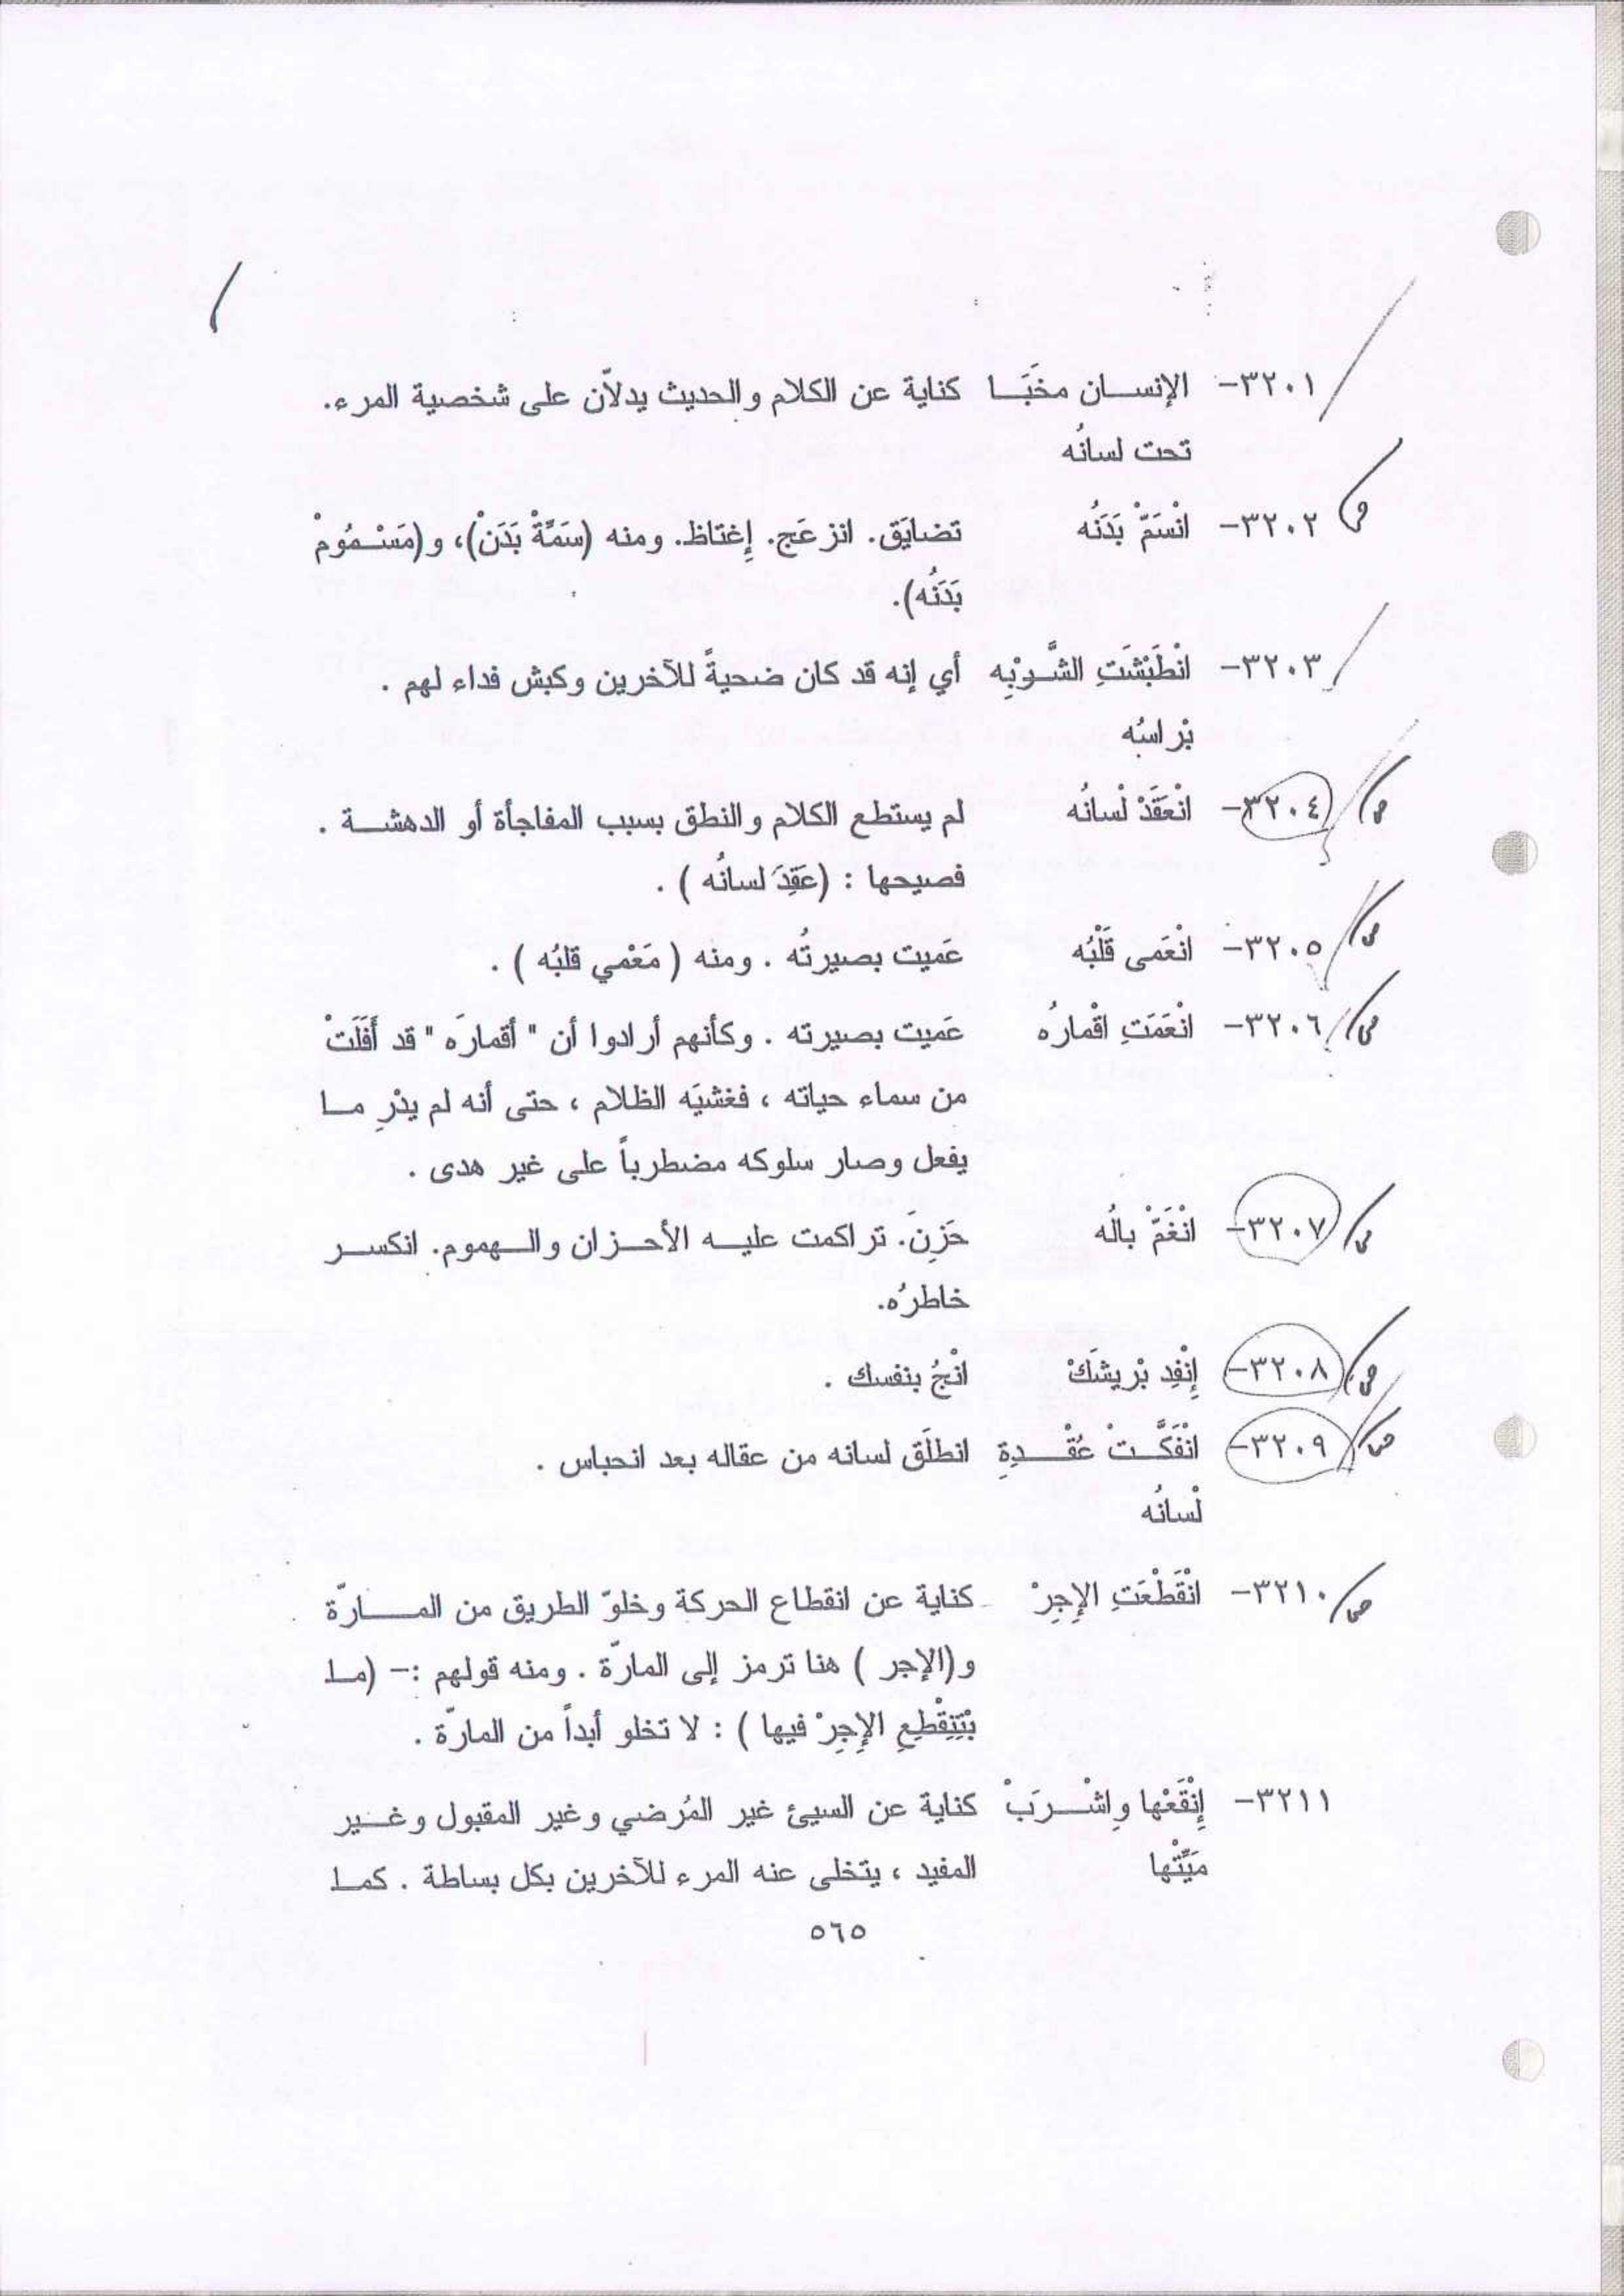 ٣٢٠١- الإنسـان مخَبَـا كناية عن الكلام والحديث يدلاّن على شخصية المرء.
تحت لسانُه
٣٢٠٢- انْسَمّْ بَدَنُه تضايَق. انزعَج. إغتاظ. ومنه (سَمِّةْ بَدَنْ)، و(مَسْـمُومْ
بَدَنُه).
٣٢٠٣- انْطَبْشَتِ الشَّـوْبِه أي إنه قد كان ضحيةً للآخرين وكبش فداء لهم .
بْراسُه
٣٢٠٤- انْعَقَدْ لْسانُه لم يستطع الكلام والنطق بسبب المفاجأة أو الدهشـة .
فصيحها : (عَقِدَ لسانُه ) .
٣٢٠٥- انْعَمى قَلْبُه عَميت بصيرتُه . ومنه ( مَعْمي قلبُه ) .
٣٢٠٦- انْعَمَتِ اقْمارُه عَميت بصيرته . وكأنهم أرادوا أن " أقمارَه " قد أَفَلَتْ
من سماء حياته ، فغشيَه الظلام ، حتى أنه لم يدْرِ مـا
يفعل وصار سلوكه مضطرباً على غير هدى .
٣٢٠٧- انْغَمّْ بالُه حَزِنَ. تراكمت عليـه الأحـزان والـهموم. انكسـر
خاطرُه.
٣٢٠٨- إِنْفِد بْريشَكْ انْجُ بنفسك .
٣٢٠٩- انْفَكَّـتْ عُقْـدِةِ انطلَق لسانه من عقاله بعد انحباس .
لْسانُه
٣٢١٠- انْقَطْعَتِ الإِجِرْ كناية عن انقطاع الحركة وخلوّ الطريق من المـارّة
و(الإجر ) هنا ترمز إلى المارّة . ومنه قولهم :- (مـا
بْتِنِقْطِعِ الإِجِرْ فيها ) : لا تخلو أبداً من المارّة .
٣٢١١- إِنْقَعْها واِشْـرَبْ كناية عن السيئ غير المُرضي وغير المقبول وغـير
مَيِّتْها المفيد ، يتخلى عنه المرء للآخرين بكل بساطة . كمـا
٥٦٥